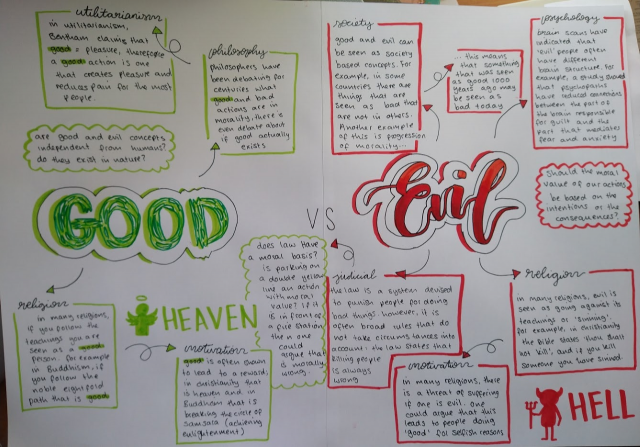 utilitarianism
in utilitarianism,
Bentham claims that
good = pleasure, therefore
a good action is one
that creates pleasure and
reduces pain for the most
people.
philosophy
philosophers have
been debating for
centuries what
good and bad
actions are in
morality, there is
even debate about
if good actually
exists
are good and evil concepts
independent from humans?
do they exist in nature?
GOOD
VS
religion
in many religions,
if you follow the
teachings you are
seen as a good
person. for example
in Buddhism, if
you follow the
noble eightfold
path that is good
HEAVEN
motivation
good is often shown
to lead to a reward;
in christianity that
is heaven and in
Buddhism that is
breaking the circle of
samsara (achieving
enlightenment)
does law have
a moral basis?
is parking on
a double yellow
line an action
with moral
value? if it
is in front of
a fire station
then one
could
argue that
is morally
wrong.
society
good and evil can
be seen as society
based concepts. for
example, in some
countries there are
things that are
seen as bad that
are not in others.
Another example
of this is progression
of morality...
... this means
that something
that was seen
as good 1000
years ago may
be seen as
bad today
psychology
brain scans have
indicated that
'evil' people often
have different
brain structure. for
example, a study showed
that psychopaths
have reduced connections
between the part of
the brain responsible
for guilt and the
part that mediates
fear and anxiety
Evil
Should the moral
value of our actions
be based on the
intentions or the
consequences?
judicial
the law is a system devised
to punish people for doing
bad things. however, it is
often broad rules that do
not take circumstances into
account. the law states that
killing people
is always
wrong
religion
in many religions, evil is
seen as going against its
teachings or 'sinning'.
for example, in christianity
the Bible states 'thou shalt
not kill', and if you kill
someone you have sinned.
motivation
in many religions, there
is a threat of suffering
if one is evil. one
could argue that this
leads to people doing
'good' for selfish reasons
HELL